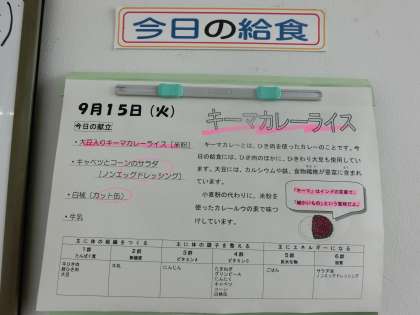 今日の給食
9月15日（火）
今日の献立
・大豆入りキーマカレーライス［米粉］
・キャベツとコーンのサラダ
［ノンエッグドレッシング］
・白桃（カット缶）
・牛乳
キーマカレーライス
キーマカレーとは、ひき肉を使ったカレーのことです。今
日の給食には、ひき肉のほかに、ひきわり大豆も使用してい
ます。大豆には、カルシウムや鉄、食物繊維が豊富に含まれ
ています。
小麦粉の代わりに、米粉を
使ったカレールウの素で味つ
けしています。
「キーマ」はインドの言葉で、
「細かいもの」という意味だよ。
主に体の組織をつくる
主に体の調子を整える
主にエネルギーになる
1群
たんぱく質
2群
無機質
3群
ビタミンA
4群
ビタミンC
5群
炭水化物
6群
脂質
牛ひき肉
豚ひき肉
大豆
牛乳
にんじん
たまねぎ
グリンピース
にんにく
キャベツ
コーン
白桃缶
ごはん
サラダ油
ノンエッグドレッシング